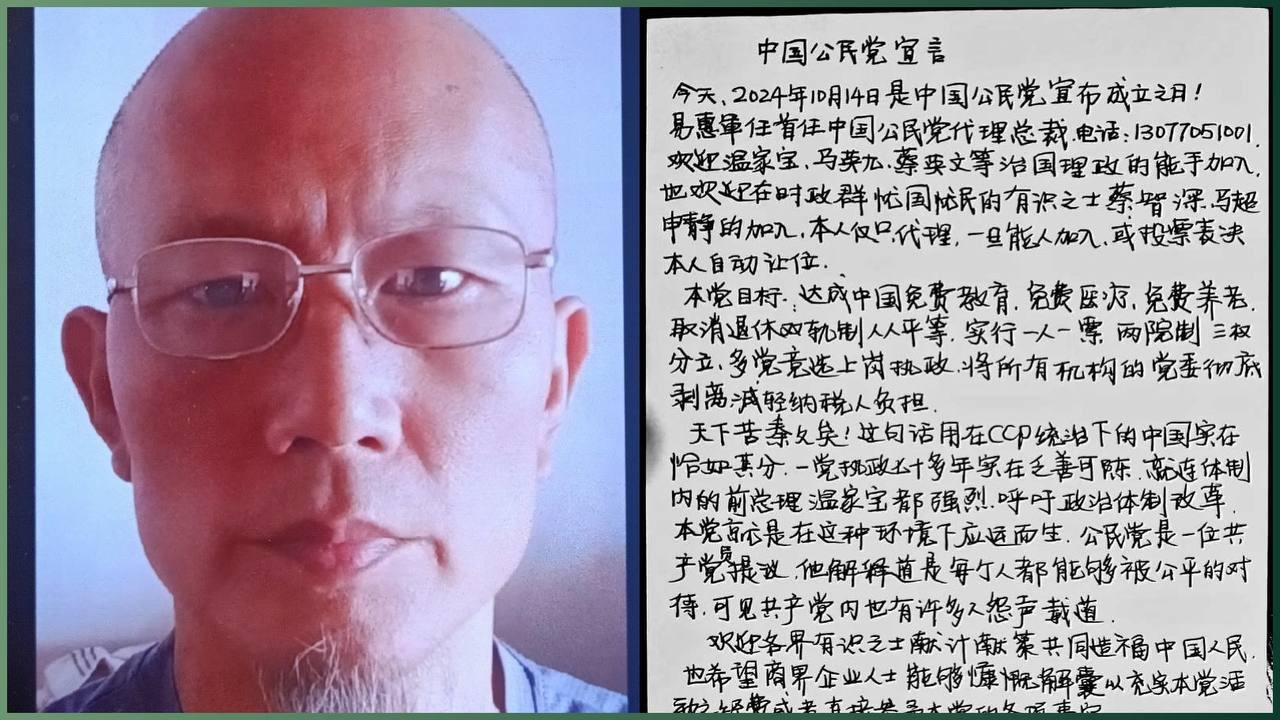 中国公民党宣言
今天,2024年10月14日是中国公民党宣布成立之日!
易惠军任首任中国公民党代理总裁,电话:13077051001,
欢迎温家宝、马英九、蔡英文等治国理政的能手加入,
也欢迎在时政群忧国忧民的有识之士蔡智深、马超
申静的加入,本人仅只代理,一旦能人加入,或投票表决
本人自动让位.
本党目标:达成中国免费教育,免费医疗,免费养老,
取消退休双轨制人人平等,实行一人一票 两院制 三权
分立,多党竞选上岗执政,将所有机构的党委彻底
剥离减轻纳税人负担.
天下苦秦久矣!这句话用在CCP统治下的中国实在
恰如其分,一党执政七十多年实在乏善可陈,就连体制
内的前总理温家宝都强烈呼吁政治体制改革,
本党就是在这种环境下应运而生,公民党是一位共
产党员提议,他解释道是每个人都能够被公平的对
待,可见共产党内也有许多人怨声载道.
欢迎各界有识之士献计献策共同造福中国人民,
也希望商界企业人士能够慷慨解囊以充实本党活